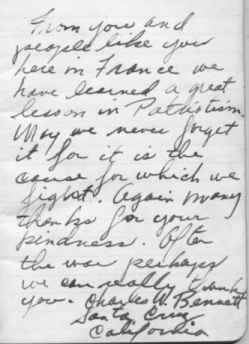 From you and
people like you
here in France we
have learned a great
lesson in Patriotism.
May we never forget
it for it is the
cause for which we
fight. Again many
thanks for your
kindness. After
the war perhaps
we can really thank
you. Charles W. Bennett
Santa Cruz
California